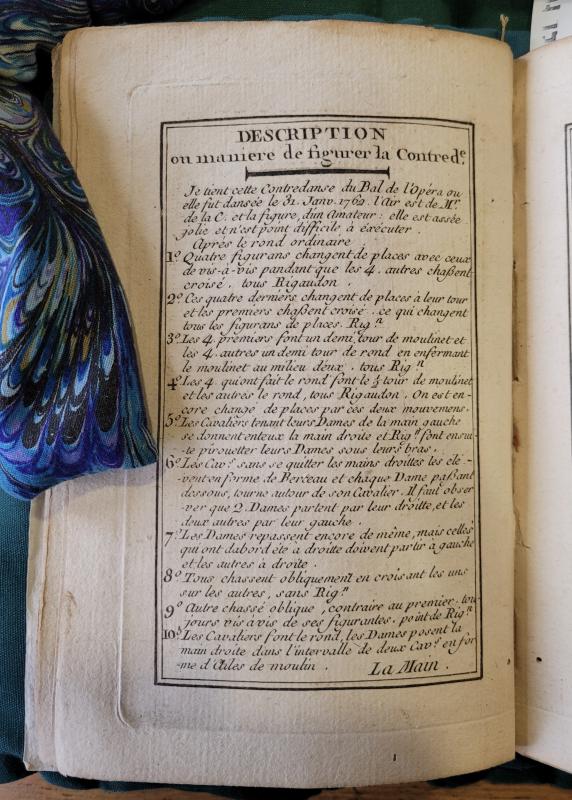 DESCRIPTION
ou maniere de figurer la Contred.e
Je tient cette Contredanse du Bal de l'Opéra ou
elle fut dansée le 31. Janv. 1762. l'Air est de M.r
de la C. et la figure, d'un Amateur: elle est assée
jolie et n'est point difficile à éxécuter.
Après le rond ordinaire
1.o Quatre figurans changent de places avec ceux
de vis-à-vis pandant que les 4. autres chaßent
croisé. tous Rigaudon.
2.o Ces quatre derniers changent de places à leur tour
et les premiers chaßent croisé. ce qui changent
tous les figurans de places. Rig.n
3.o Les 4. premiers font un demi tour de moulinet et
les 4. autres un demi tour de rond en enfermant
le moulinet au milieu d'eux. tous Rig.n
4.o Les 4. qui ont fait le rond font le ½ tour de moulinet
et les autres le rond, tous Rigaudon. On est en-
core changé de places par ces deux mouvemens.
5.o Les Cavaliers tenant leurs Dames de la main gauche
se donnent enteux la main droite et Rig.n font ensui-
-te pirouetter leurs Dames sous leurs bras.
6.o Les Cav.rs sans se quitter les mains droittes les élé-
-vent en forme de Berceau et chaque Dame paßant
dessous, tourne autour de son Cavalier. Il faut obser
-ver que 2. Dames partent par leur droitte, et les
deux autres par leur gauche.
7.o Les Dames repassent encore de même, mais celles
qui ont dabord été à droite doivent partir à gauche
et les autres à droite.
8.o Tous chassent obliquement en croisant les uns
sur les autres, sans Rig.n
9.o Autre chassé oblique, contraire au premier. tou-
jours vis à vis de ses figurantes. point de Rig.n
10.o Les Cavaliers font le rond, les Dames posent la
main droite dans l'intervalle de deux Cav.rs en for
-me d'Ailes de moulin. La Main.